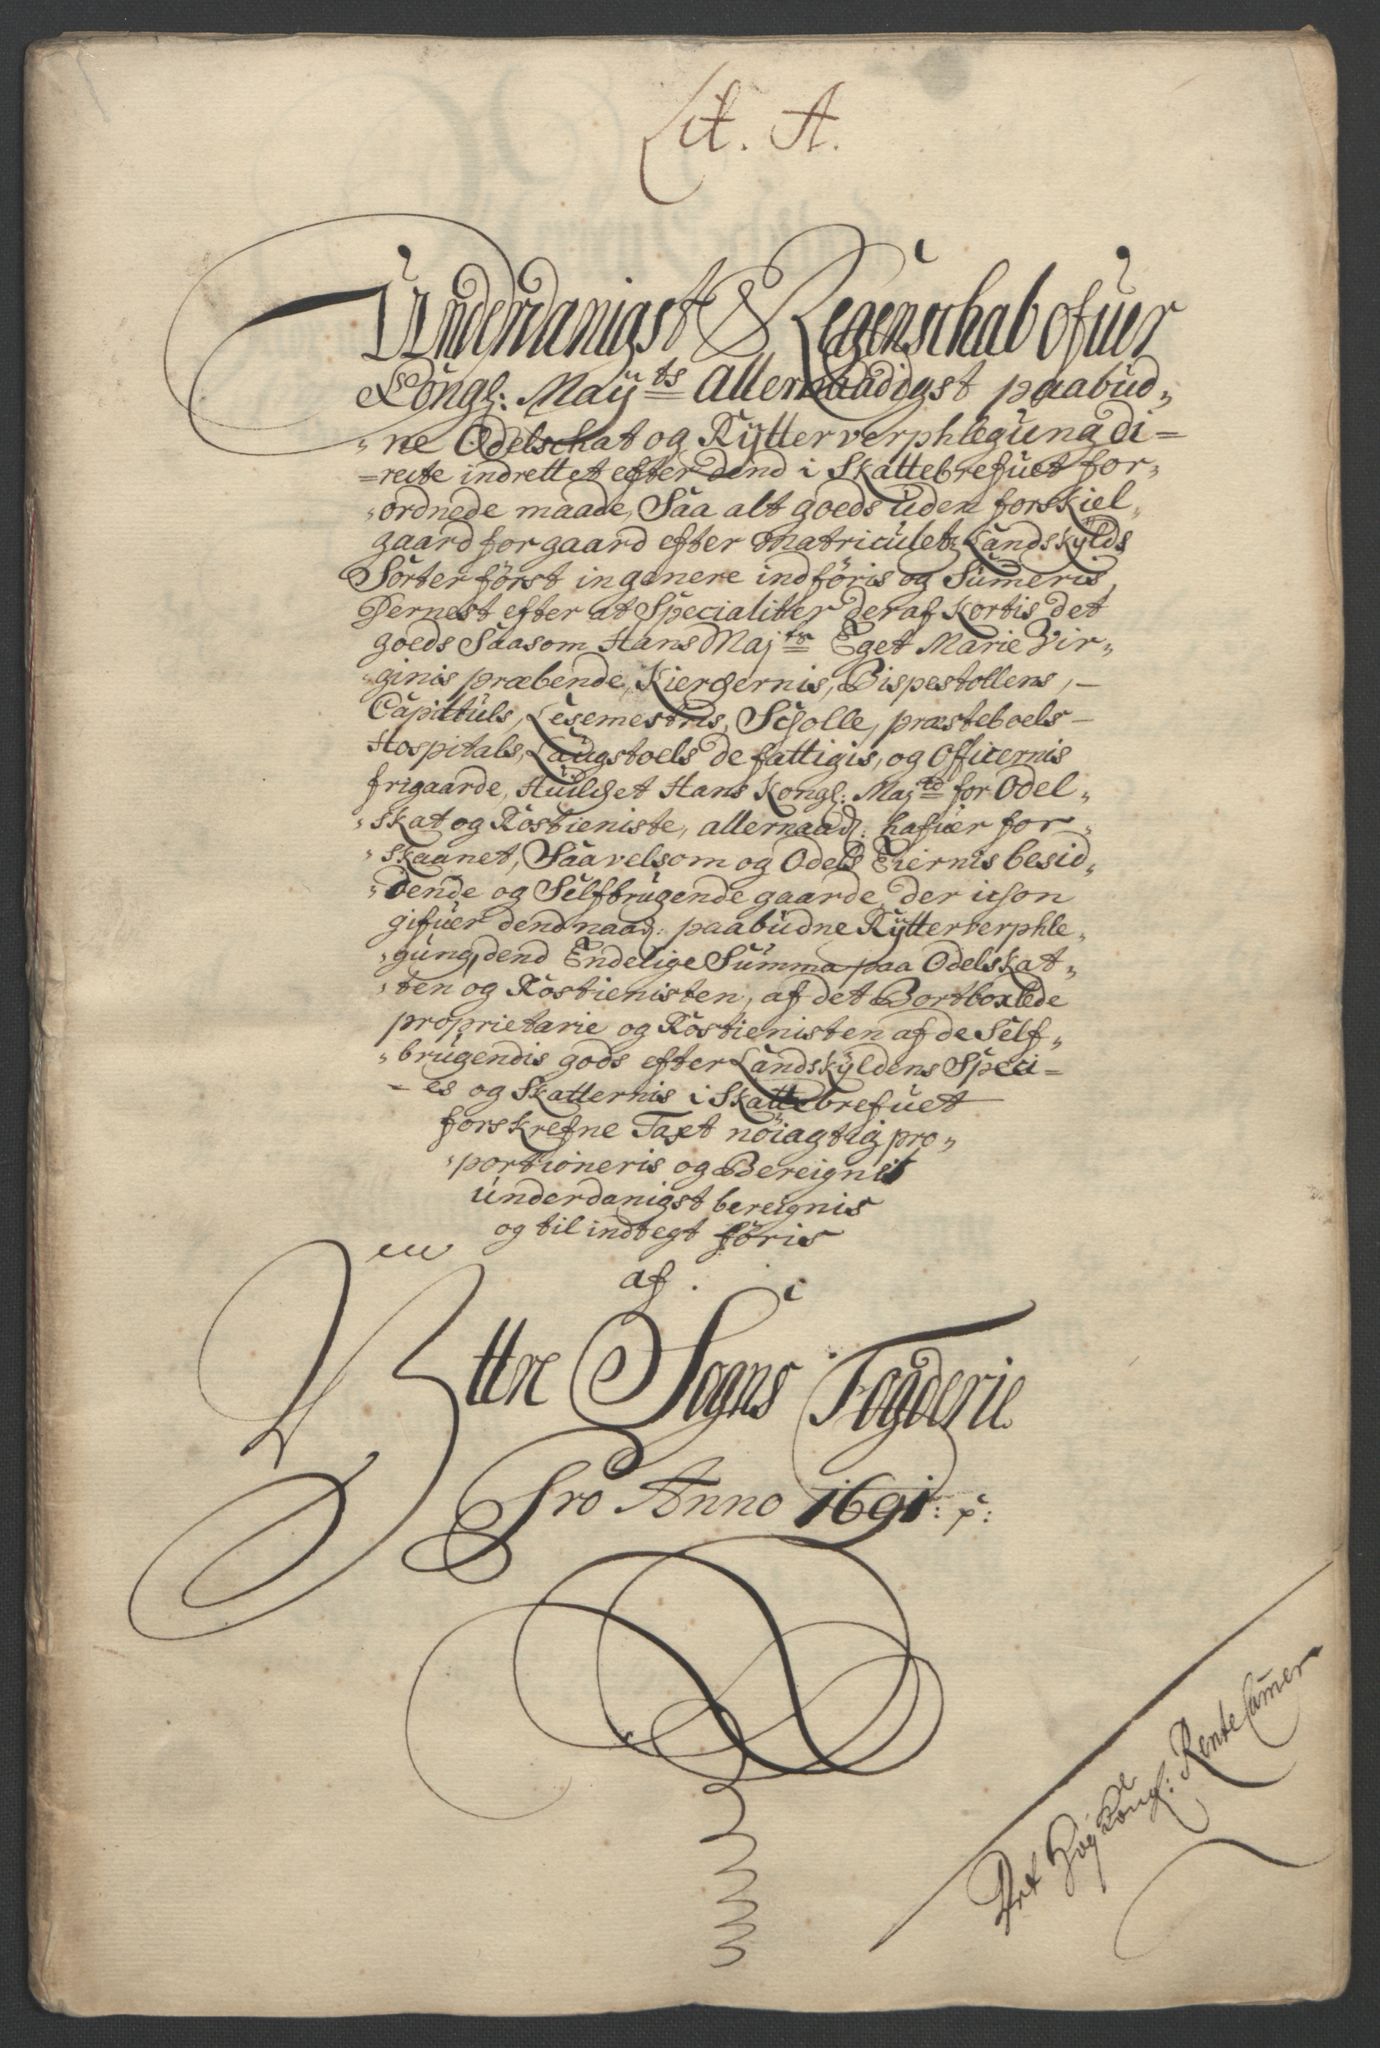 Lit. A.
Underdanigst Regenschab ofuer
Kongl: Maÿts allernaadigst paabud„
„ne Odelschat og Rÿtterverphlegung di=
=recte indrettet efter dend i Skattebrefuet for„
„ordnede maade, Saa alt goeds uden forskiel„
gaard for gaard efter Matriculet: Landskÿlds
Sorter först in genere indföris og Sumeris,
Dernest efter at Specialiter deraf kortis det
goeds Saasom Hans Majts Eget Marie Vir„
„ginis præbende, Kierchernis, Bispestollens, –
Capituls, Lesemestris, Scholle, præsteboels –
Hospitals, Laugstoels de fattigis, og Officernis
frigaarde, Huilchet Hans Kongl: Majts for Odel„
„skat og Rostieniste, allernaad: hafuer for„
„skaanet, Saavelsom og Odels Eiernis besid„
„dende og Selfbrugende gaarde, der ichon
gifuer dend naad: paabudne Rÿtterverphle„
„gung, dend Endelige Summa paa Odelskat„
„ten og Rostienisten, af det Bortboxlede
proprietarie og Rostienisten af de Self„
„brugendis gods efter Landskÿldens Speci=
=es og Skatternis i Skattebrefuet
forskrefne Taxt nöiagtig pro„
„portioneris og Bereignis
underdanigst bereignis
og til indtegt föris
af.
Yttre Sogns Fogderie
Pro Anno 1691:
Det Höy Kongl: Rente Camer